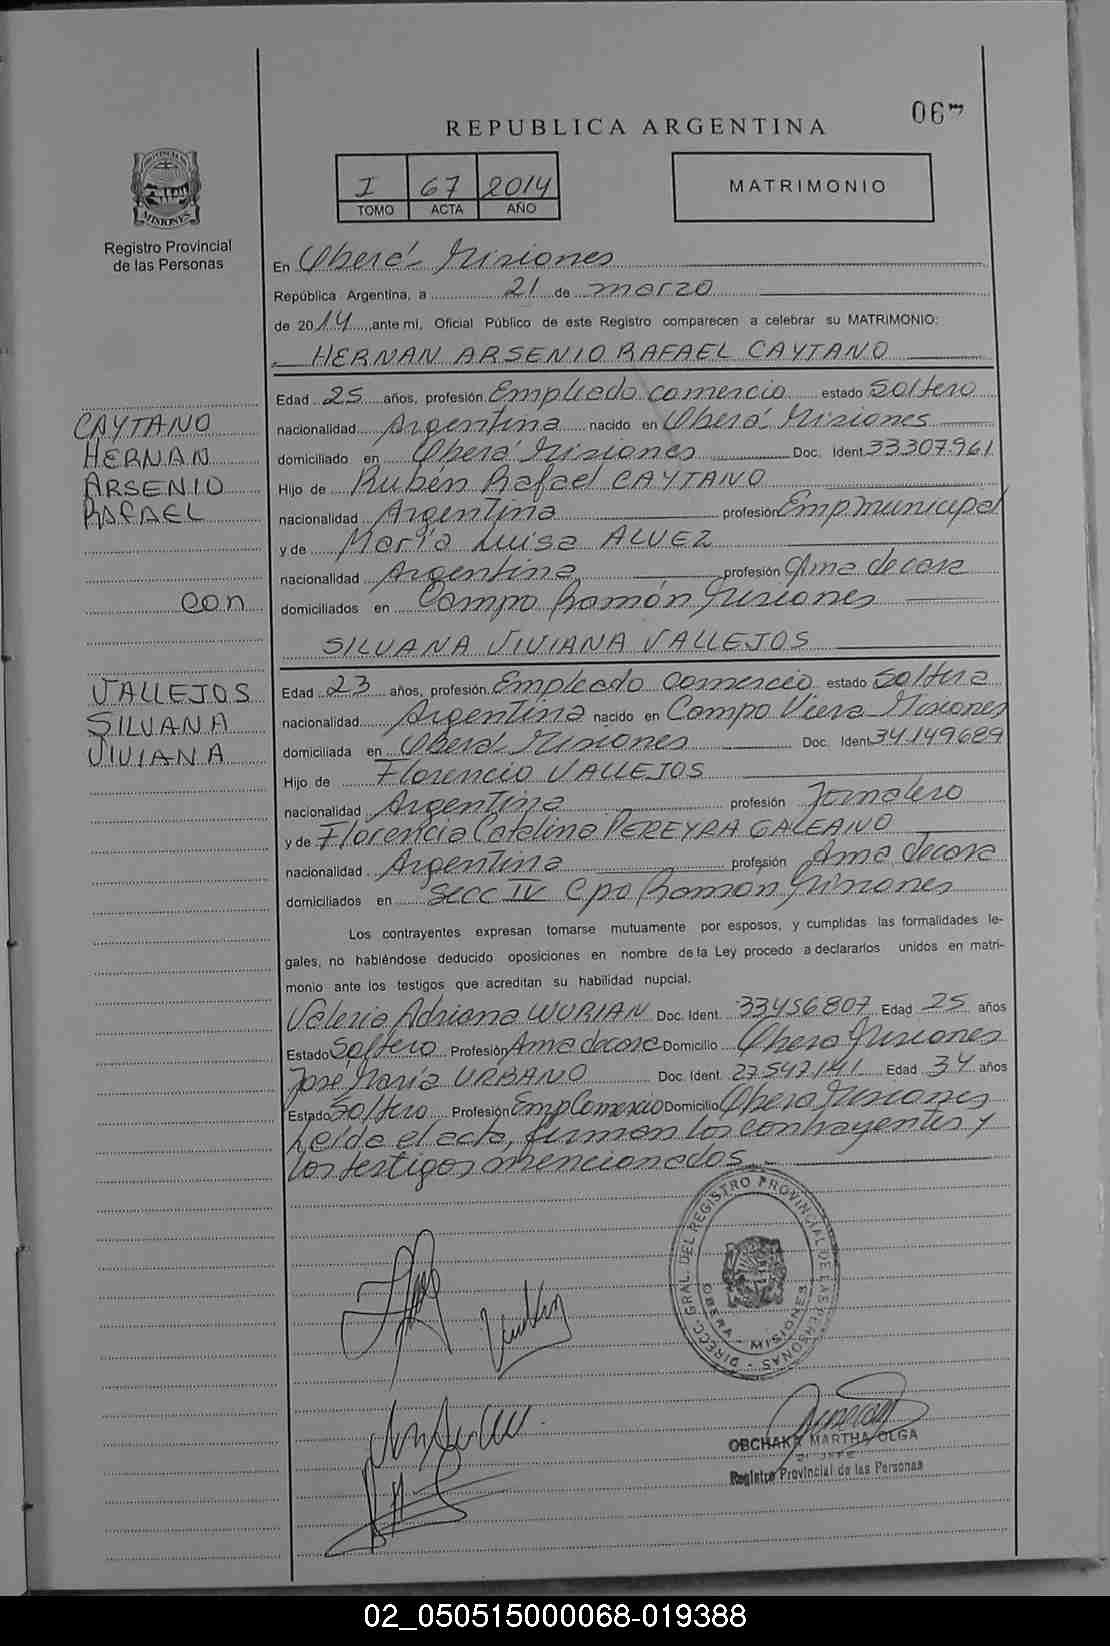 06
REPUBLICA ARGENTINA
I 67 2014
TOMO ACTA AÑO
MATRIMONIO
PROVINCIA DE MISIONES
Registro Provincial
de las Personas
En Oberá Misiones
República Argentina, a 21 de marzo
de 2014 ante mi, Oficial Público de este Registro comparecen a celebrar su MATRIMONIO:
HERNAN ARSENIO RAFAEL CAYTANO
Edad 25 años, profesión Empleado comercio estado Soltero
nacionalidad Argentina nacido en Oberá Misiones
domiciliado en Oberá Misiones Doc. Ident. 33.307.961
Hijo de Rubén Rafael CAYTANO
nacionalidad Argentina profesión Emp municipal
y de María Luisa ALVEZ
nacionalidad Argentina profesión Ama de casa
domiciliados en Campo Ramón Misiones
SILVANA VIVIANA VALLEJOS
Edad 23 años, profesión Empleado comercio estado Soltera
nacionalidad Argentina nacido en Campo Viera Misiones
domiciliada en Oberá Misiones Doc. Ident 34149689
Hijo de Florencio VALLEJOS
nacionalidad Argentina profesión Jornalero
y de Florencia Catalina PEREYRA GALEANO
nacionalidad Argentina profesión Ama de casa
domiciliados en Secc IV Cpo Ramon Misiones
CAYTANO
HERNAN
ARSENIO
RAFAEL
con
VALLEJOS
SILVANA
VIVIANA
Los contrayentes expresan tomarse mutuamente por esposos, y cumplidas las formalidades le-
gales, no habiéndose deducido oposiciones en nombre de la Ley procedo a declararlos unidos en matri-
monio ante los testigos que acreditan su habilidad nupcial.
Valeria Adriana WURIAN Doc. Ident. 33456807 Edad 25 años
Estado Soltero Profesión Ama de casa Domicilio Obera Misiones
José María URBANO Doc. Ident. 27.542.141 Edad 34 años
Estado Soltero Profesión Emp Comercio Domicilio Obera Misiones
Leída el acta, firman los contrayentes y
los testigos mencionados
DIRECC. GRAL. DEL REGISTRO PROVINCIAL DE LAS PERSONAS
OBERA - MISIONES
OBCHAKR MARTHA OLGA
Registro Provincial de las Personas
02_050515000068-019388